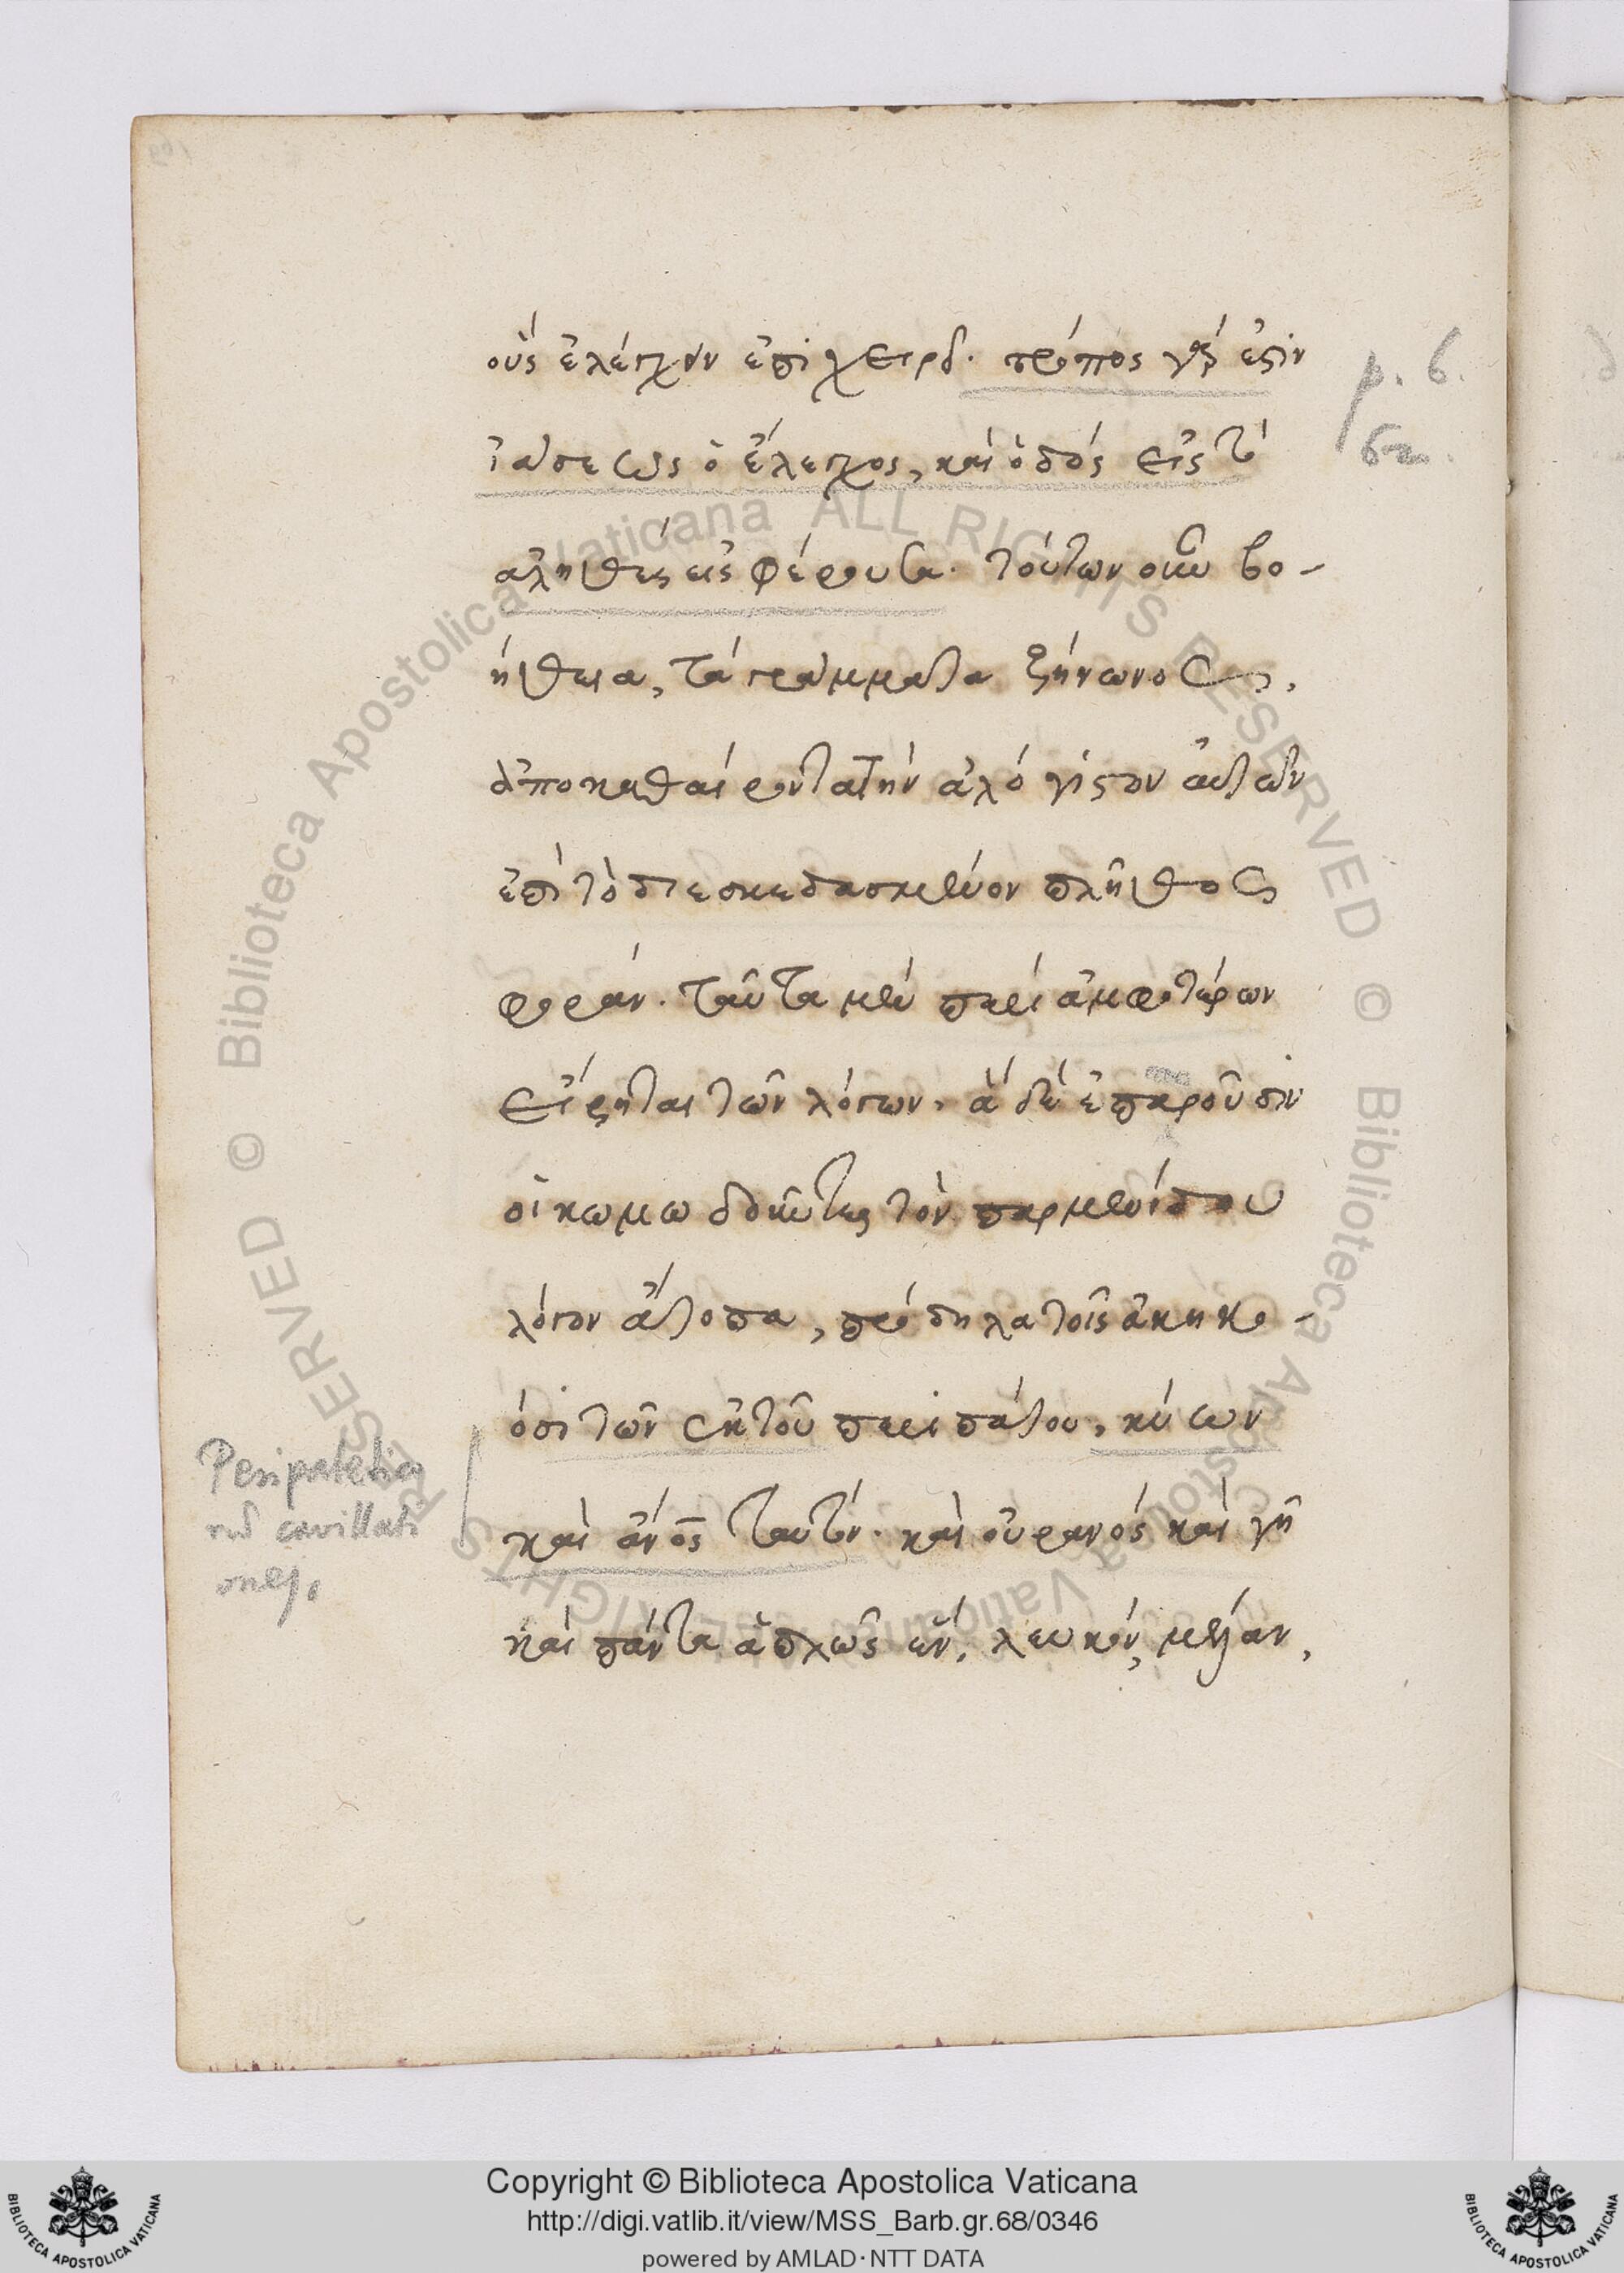 οὓς ἐλέγχειν ἐπιχειρεῖ. τρόπος γάρ ἐστιν
ἰάσεως ὁ ἔλεγχος, καὶ ὁδὸς εἰς τὸ
ἀληθὲς εἰσφέρουσα. τούτων οὖν βο-
ήθεια, τὰ γράμματα ζήνωνος,
ἀποκαθαίροντα τὴν ἀλόγιστον αὐτῶν
ἐπὶ τὸ διεσκεδασμένον πλῆθος
φοράν. ταῦτα μὲν περὶ ἀμφοτέρων
εἴρηται τῶν λόγων. ἃ δὲ ἐπαροῦσιν
οἱ κωμωδοῦντες τὸν παρμενίδου
λόγον ἄτοπα, πρόδηλα τοῖς ἀκηκο-
όσι τῶν ἐκ τοῦ περιπάτου, κύων
καὶ ἄνος ταυτόν. καὶ οὐρανὸς καὶ γῆ
καὶ πάντα ἁπλῶς ἕν, λευκόν, μέλαν,
p. 6.
Peripatetico
rũ cavillati
ones.
Copyright © Biblioteca Apostolica Vaticana
http://digi.vatlib.it/view/MSS_Barb.gr.68/0346
powered by AMLAD·NTT DATA
BIBLIOTECA APOSTOLICA VATICANA
BIBLIOTECA APOSTOLICA VATICANA
© Biblioteca Apostolica Vaticana ALL RIGHTS RESERVED
© Biblioteca Apostolica Vaticana ALL RIGHTS RESERVED